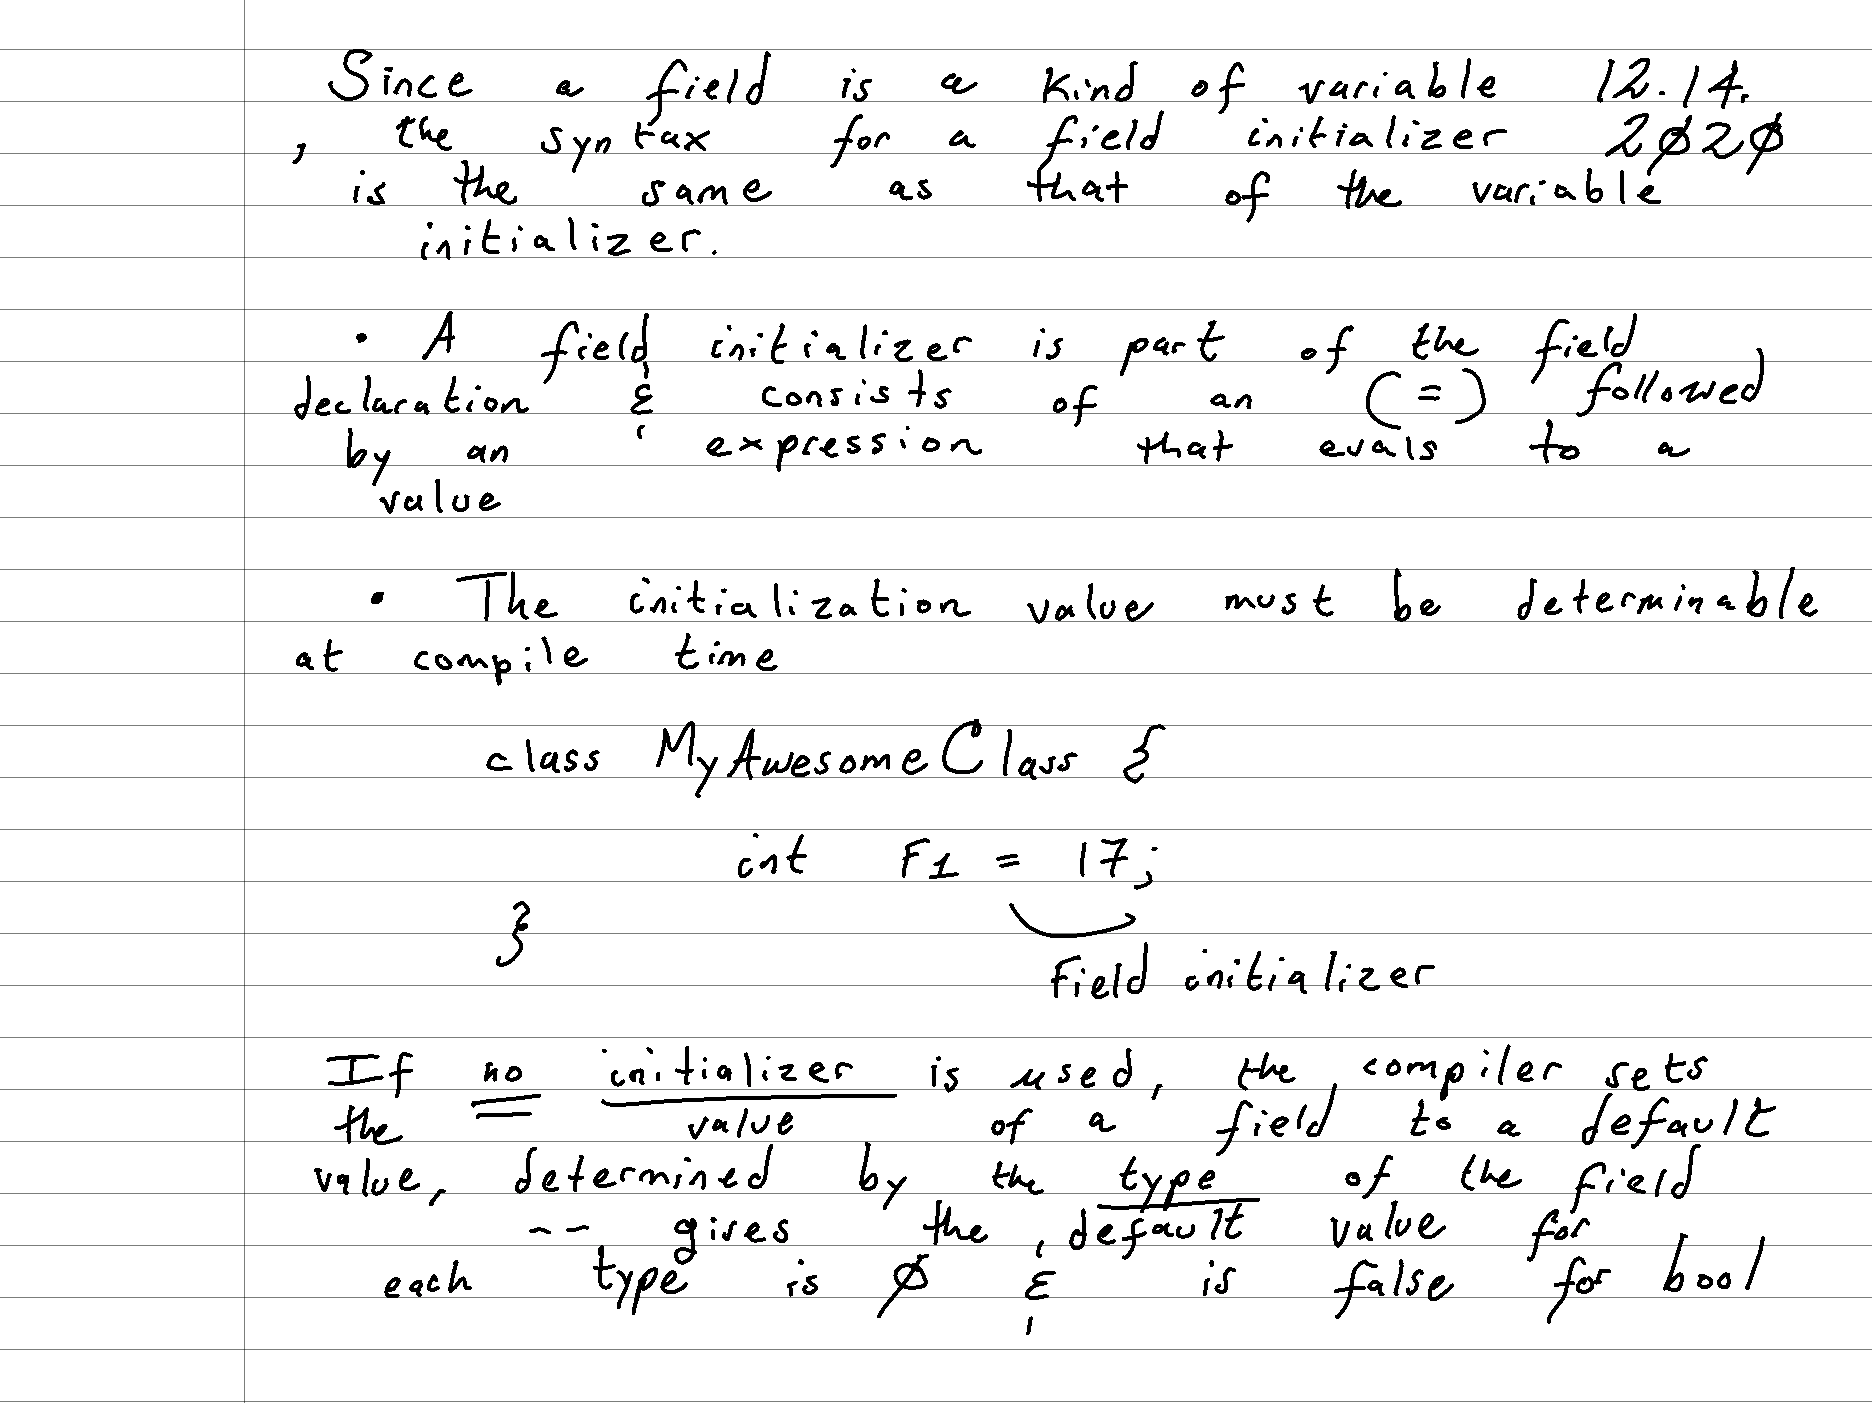 Since a field is a kind of variable 12.14.
, the syntax for a field initializer 2020
is the same as that of the variable
initializer.
• A field initializer is part of the field
declaration & consists of an (=) followed
by an expression that evals to a
value
• The initialization value must be determinable
at compile time
class MyAwesomeClass {
int F1 = 17;
}
Field initializer
If no initializer is used, the compiler sets
the value of a field to a default
value, determined by the type of the field
-- gives the default value for
each type is 0 & is false for bool